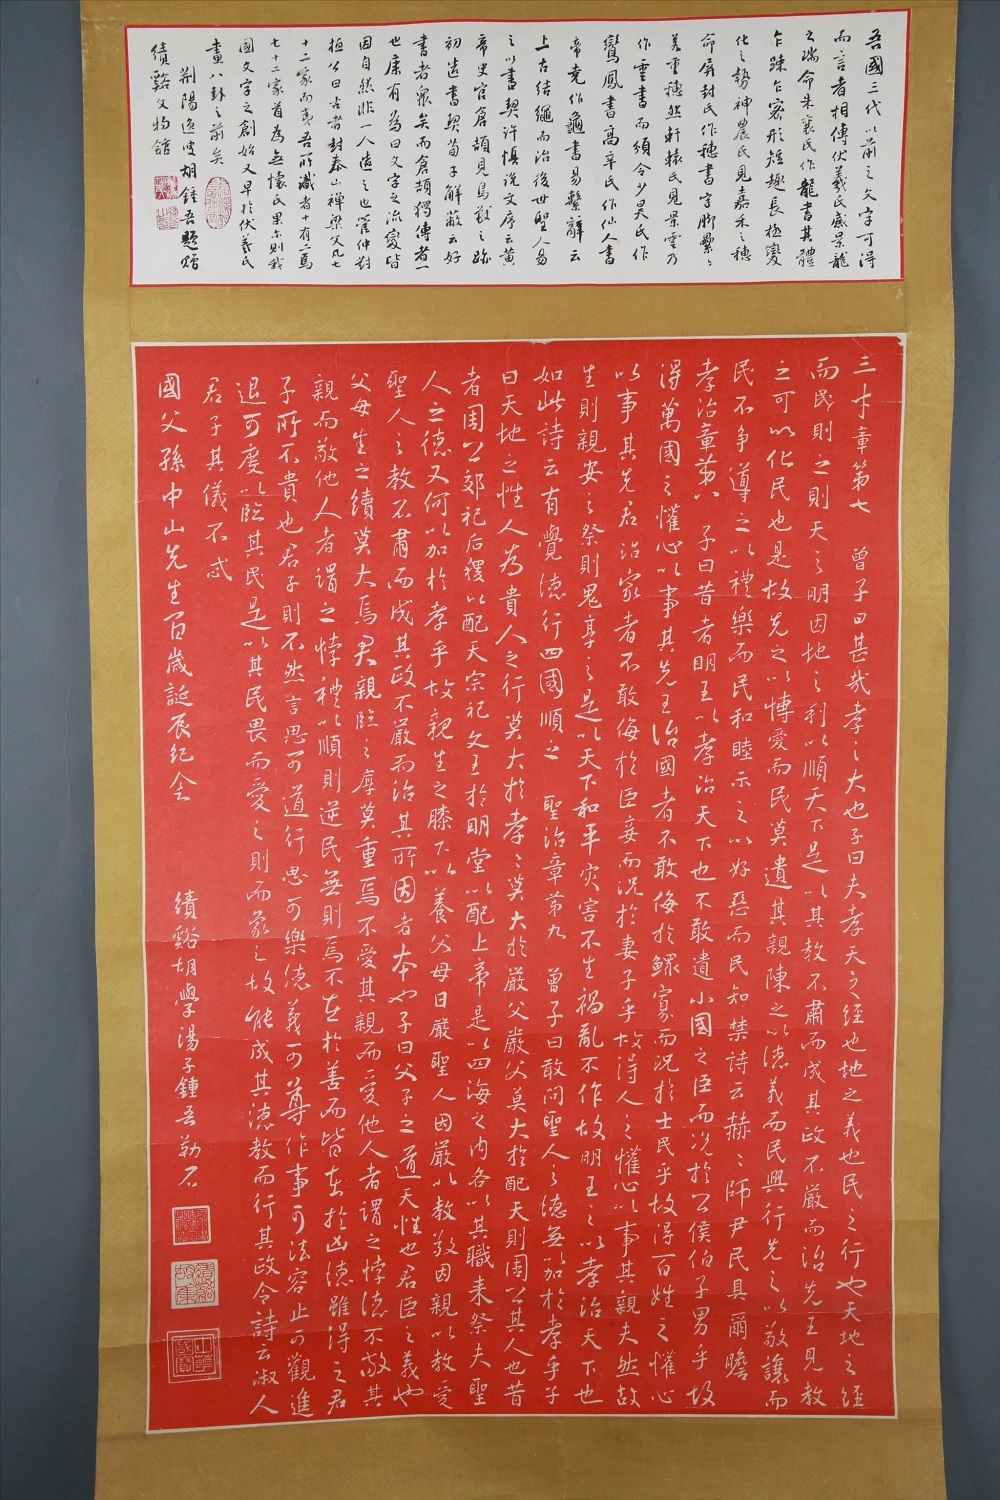 吾國三代以前之文字可得
而言者相傳伏羲氏感景龍
之瑞命朱襄氏作龍書其體
乍踈乍密形短趣長極變
化之勢神農氏見嘉禾之穗
命屏封氏作穗書字脚纍〻
若重穗然軒轅氏見景雲乃
作雲書而頒令少昊氏作
鸞鳳書高辛氏作仙人書
帝堯作龜書易繫辭云
上古結繩而治後世聖人易
之以書契許慎說文序云黃
帝史官倉頡見鳥獸之跡
初造書契荀子解蔽云好
書者衆矣而倉頡獨傳者一
也康有為曰文字之流變皆
因自然非一人造之也管仲對
桓公曰古者封泰山禪梁父凡七
十二家而夷吾所識者十有二焉
七十二家首為無懷氏果爾則我
國文字之創始又早於伏羲氏
畫八卦之前矣
荆陽逸叟胡鍾吾題贈
績谿文物館
三才章第七 曾子曰甚哉孝之大也子曰夫孝天之經也地之義也民之行也天地之經
而民則之則天之明因地之利以順天下是以其教不肅而成其政不嚴而治先王見教
之可以化民也是故先之以博愛而民莫遺其親陳之以德義而民興行先之以敬讓而
民不争導之以禮樂而民和睦示之以好惡而民知禁詩云赫〻師尹民具爾瞻
孝治章第八 子曰昔者明王以孝治天下也不敢遺小國之臣而況於公侯伯子男乎故
得萬國之懽心以事其先王治國者不敢侮於鰥寡而況於士民乎故得百姓之懽心
以事其先君治家者不敢侮於臣妾而況於妻子乎故得人之懽心以事其親夫然故
生則親安之祭則鬼享之是以天下和平灾害不生禍亂不作故明王之以孝治天下也
如此詩云有覺德行四國順之 聖治章第九 曾子曰敢問聖人之德無以加於孝乎子
曰天地之性人為貴人之行莫大於孝〻莫大於嚴父嚴父莫大於配天則周公其人也昔
者周公郊祀后稷以配天宗祀文王於明堂以配上帝是以四海之内各以其職來祭夫聖
人之德又何以加於孝乎故親生之膝下以養父母日嚴聖人因嚴以教敬因親以教愛
聖人之教不肅而成其政不嚴而治其所因者本也子曰父子之道天性也君臣之義也
父母生之續莫大焉君親臨之厚莫重焉不愛其親而愛他人者謂之悖德不敬其
親而敬他人者謂之悖禮以順則逆民無則焉不在於善而皆在於凶德雖得之君
子所不貴也君子則不然言思可道行思可樂德義可尊作事可法容止可觀進
退可度以臨其民是以其民畏而愛之則而象之故能成其德教而行其政令詩云淑人
君子其儀不忒
國父孫中山先生百歲誕辰紀念 績谿胡學湯子鍾吾勒石